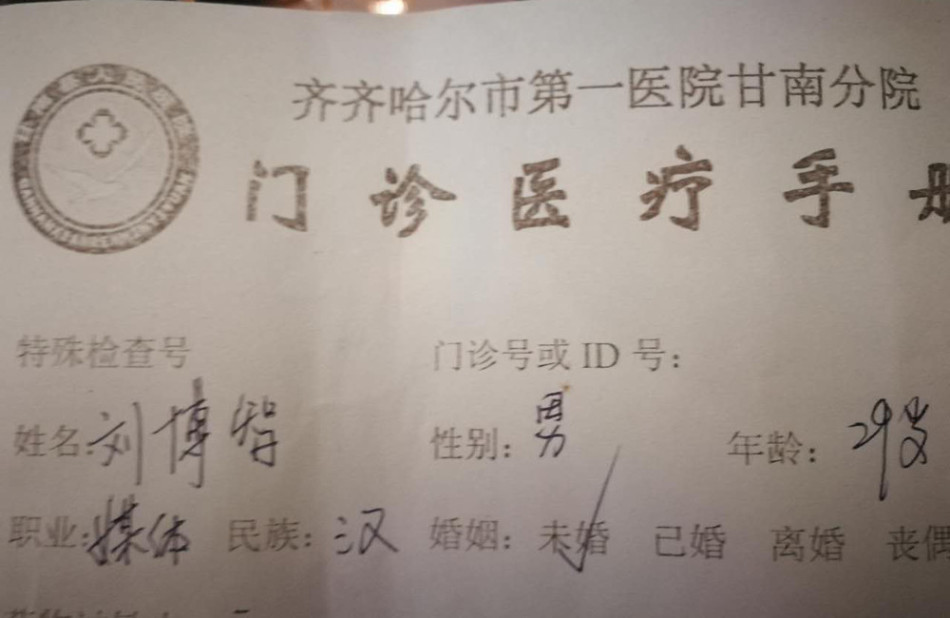 齐齐哈尔市第一医院甘南分院
门诊医疗手册
特殊检查号 门诊号或 ID 号：
姓名：刘博智 性别：男 年龄：29岁
职业：媒体 民族：汉 婚姻：未婚 已婚 离婚 丧偶